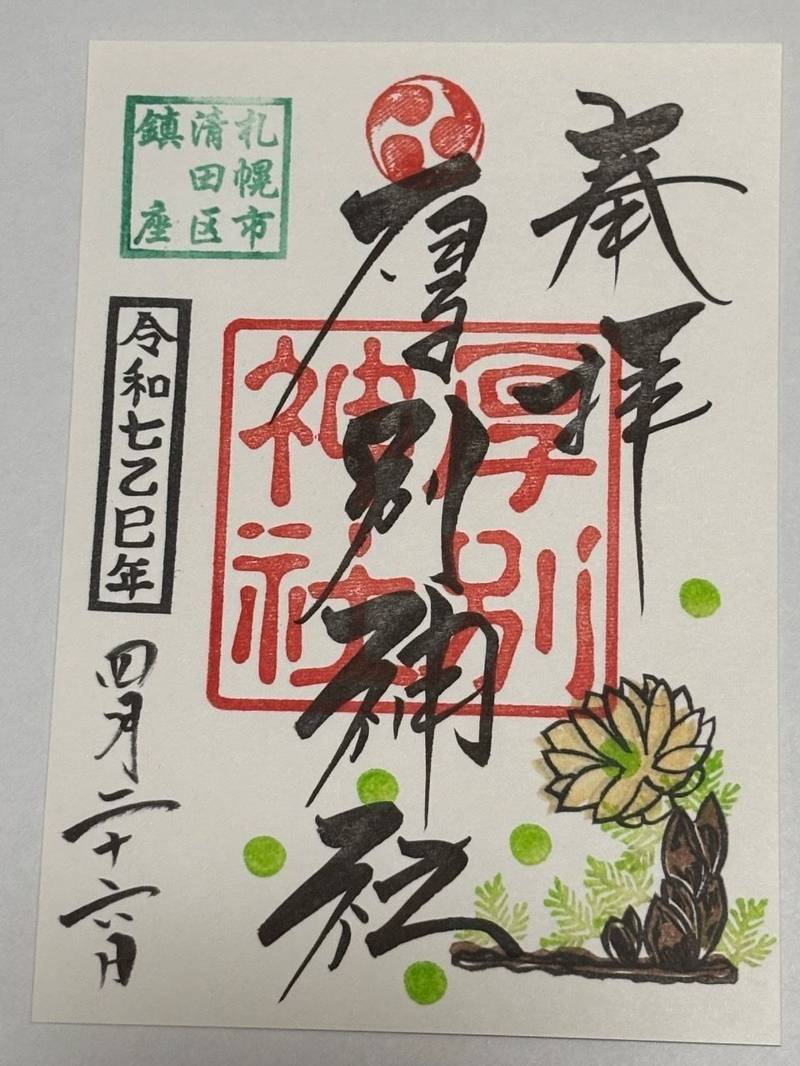 奉拝
厚別神社
厚別
神社
札幌市
清田区
鎮座
令和七乙巳年
四月二十六日